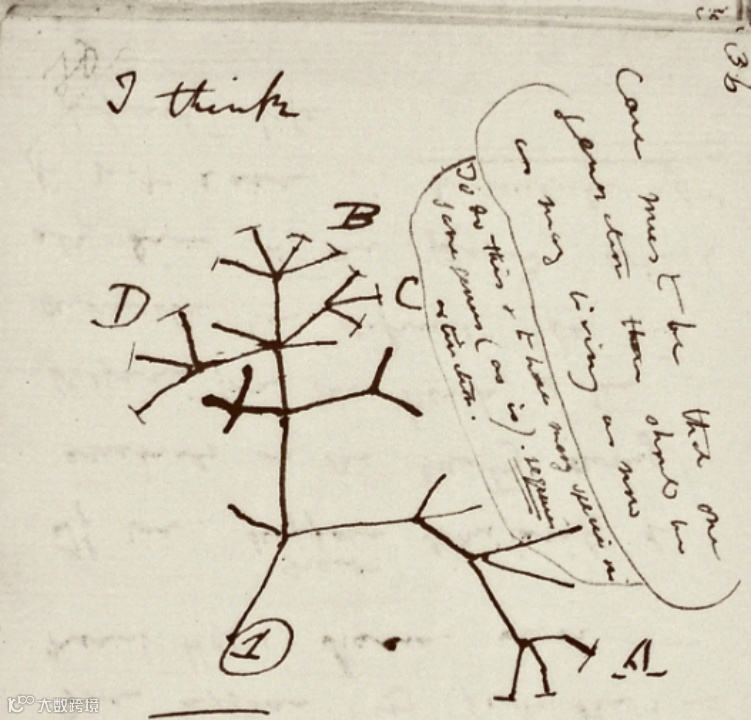 36
I think
Case must be that one
generation then should be
as many living as now
To do this & to have many species in
same genus (as is). requires
extinction.
B
C
D
A
1
大数跨境